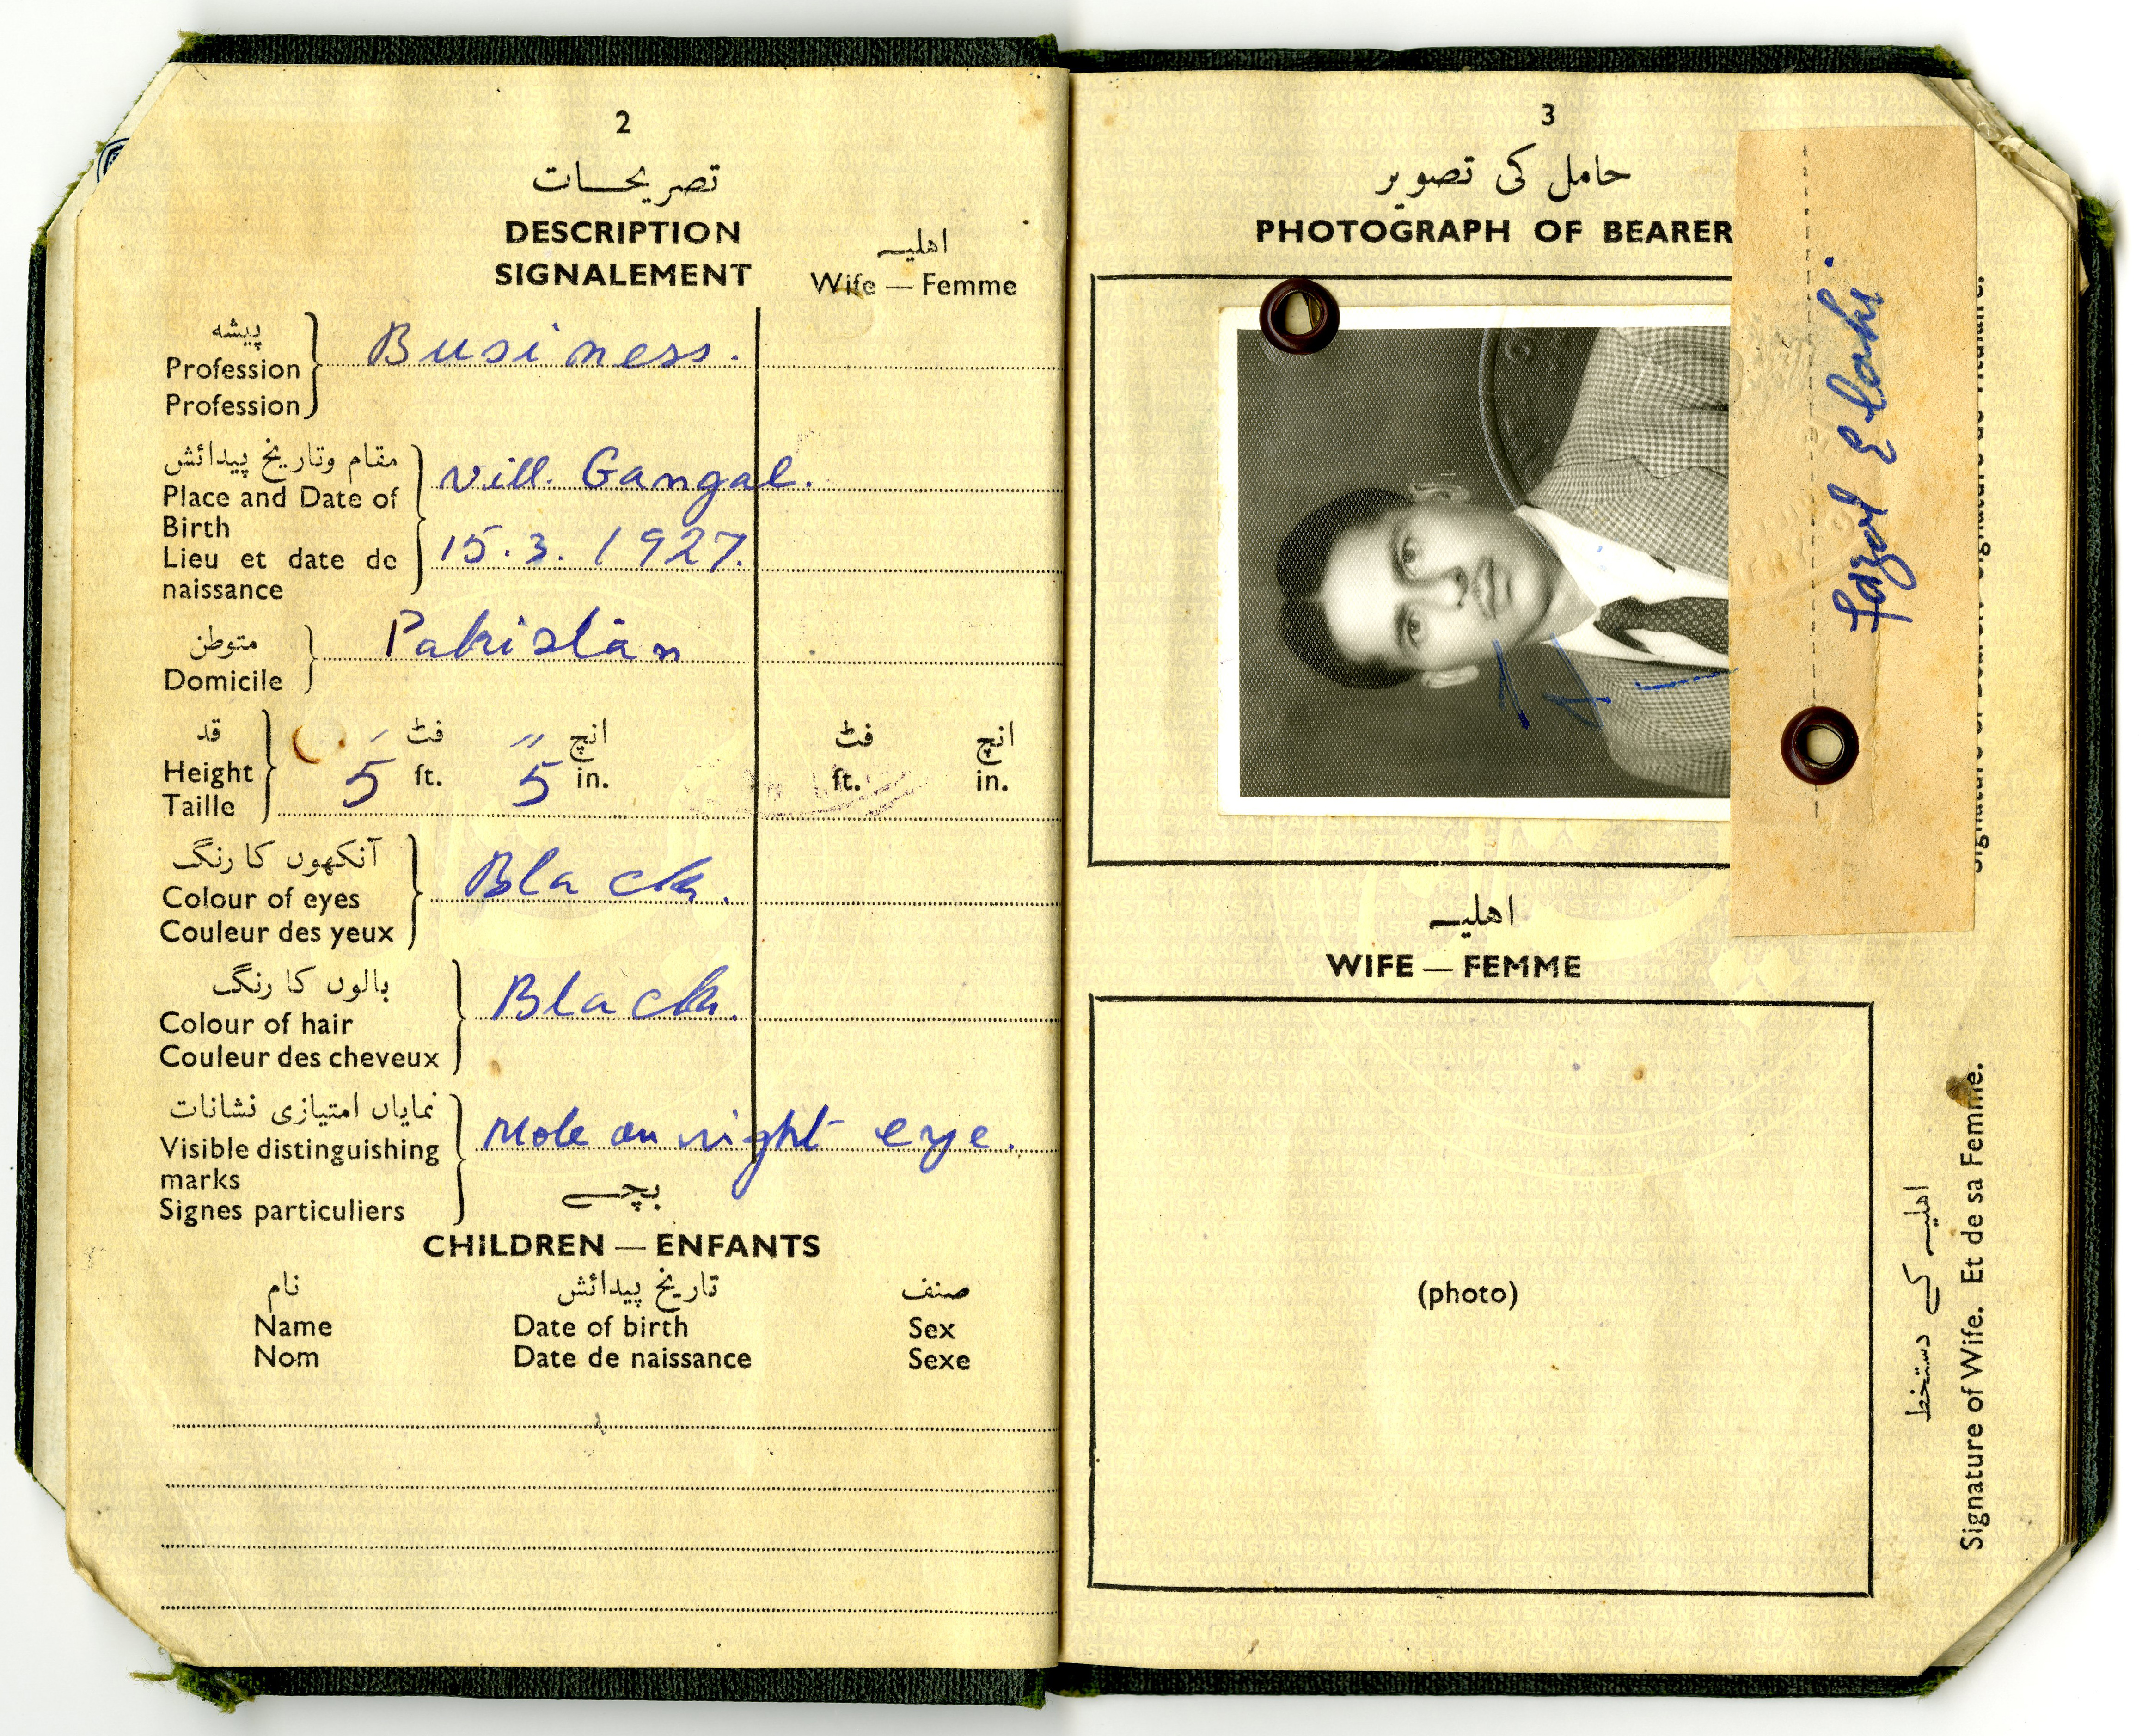 2
تصریحات
DESCRIPTION
SIGNALEMENT
اهلیہ
Wife — Femme
پیشہ
Profession
Profession
Business.
مقام وتاریخ پیدائش
Place and Date of
Birth
Lieu et date de
naissance
vill. Gangal.
15.3.1927.
متوطن
Domicile
Pakistan
قد
Height
Taille
5 فٹ 5 انچ
ft. in.
فٹ انچ
ft. in.
آنکھوں کا رنگ
Colour of eyes
Couleur des yeux
Black.
بالوں کا رنگ
Colour of hair
Couleur des cheveux
Black.
نمایاں امتیازی نشانات
Visible distinguishing
marks
Signes particuliers
Mole on right eye.
بچے
CHILDREN — ENFANTS
نام تاریخ پیدائش صنف
Name Date of birth Sex
Nom Date de naissance Sexe
3
حامل کی تصویر
PHOTOGRAPH OF BEARER
Fazal Elahi.
اهلیہ
WIFE — FEMME
(photo)
اهلیہ کے دستخط
Signature of Wife. Et de sa Femme.